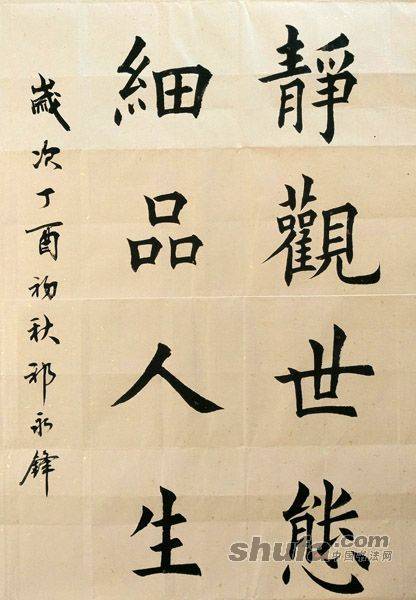 靜觀世態
細品人生
歲次丁酉初秋祁永鋒
shufa.com
中国书法网